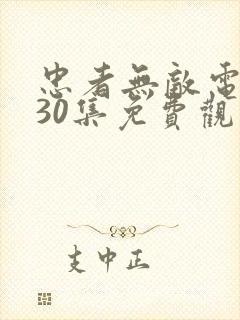 忠者無敵電
30集免費觀
支中正